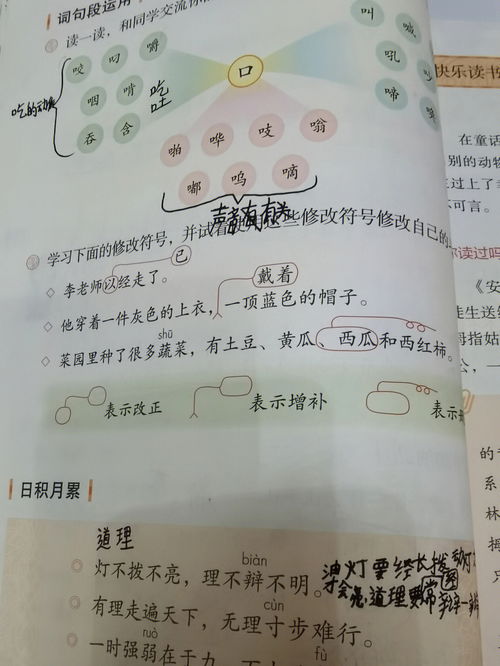 词句段运用
读一读，和同学交流你
咬 叼 嚼
咽 啃 吃
吐
吞 含
吃的动
口
叫 喊
吼
啼
啪 哗 吱 嗡
嘟 呜 嘀
学习下面的修改符号，并试着
些修改符号修改自己的
已
李老师以经走了。
戴着
他穿着一件灰色的上衣，一顶蓝色的帽子。
shū
菜园里种了很多蔬菜，有土豆、黄瓜、西瓜和西红柿。
表示改正
表示增补
表示
日积月累
道理
biàn
灯不拨不亮，理不辩不明。
油灯要经长拨
cùn
有理走遍天下，无理寸步难行。
ruò
fù
一时强弱在于力，
快乐读书
在童话
别的动物
过上了
不可言。
你读过吗
《安
徒生送
拇指姑
公，一
的
系
林
拇